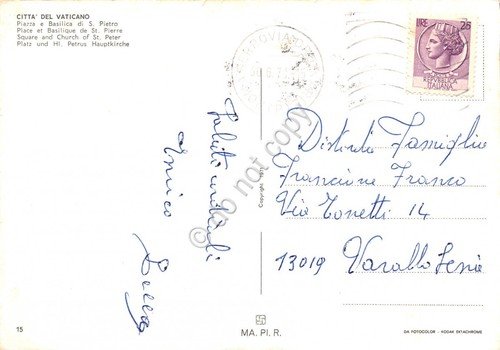 CITTA' DEL VATICANO
Piazza e Basilica di S. Pietro
Place et Basilique de St. Pierre
Square and Church of St. Peter
Platz und Hl. Petrus Hauptkirche
LIRE 25
REPUBBLICA
ITALIANA
Saluti cordiali
Enrico
Distinta Famiglia
Francione Franco
Via Tonetti 14
13019 Varallo Sesia
do not copy
15
MA. PI. R.
DA FOTOCOLOR - KODAK EKTACHROME